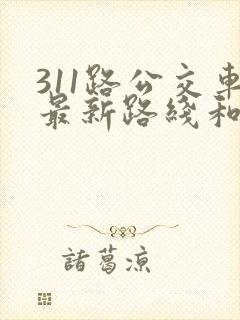 311路公交车
最新路线和
諸葛凉